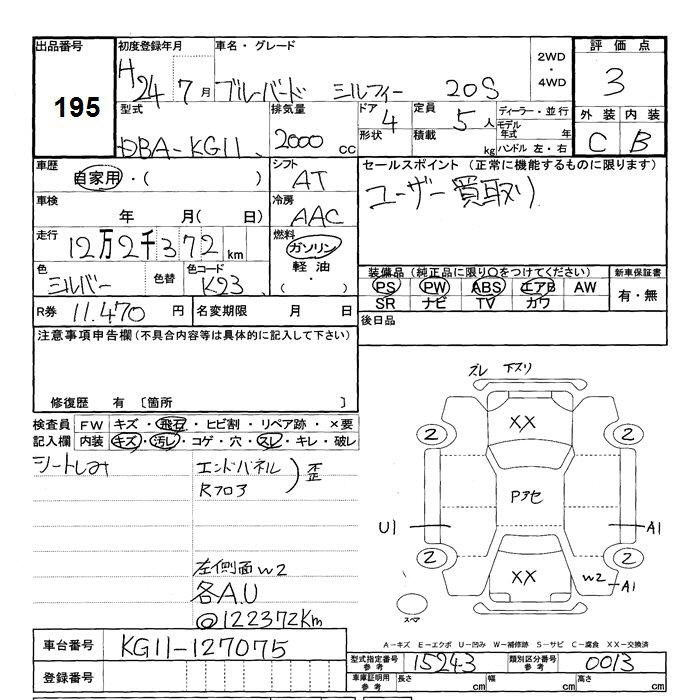 出品番号 初度登録年月 車名・グレード 評価点
195
H24 7月 ブルーバード シルフィー 20S 2WD・4WD 3
型式 排気量 ドア 定員 ディーラー・並行 外装 内装
DBA-KG11 2000 cc 4 5人 モデル年式 年 C B
形状 積載 kg ハンドル 左・右
車歴 シフト セールスポイント (正常に機能するものに限ります)
自家用・( ) AT ユーザー買取り
車検 冷房
年 月( 日) AAC
走行 燃料
12万2千372km ガソリン
色 色替 色コード 軽油 装備品(純正品に限り○をつけてください) 新車保証書
シルバー K23 (・) PS PW ABS エアB AW 有・無
SR ナビ TV カワ
R券 11,470 円 名変期限 月 日 後日品
注意事項申告欄(不具合内容等は具体的に記入して下さい)
修復歴 有 〔箇所 〕
検査員 FW キズ・飛石・ヒビ割・リペア跡・×要
記入欄 内装 キズ・汚レ・コゲ・穴・スレ・キレ・破レ
シートしみ エンドパネル
Rフロア
歪
左側面W2
各A.U
@122372Km
ズレ 下スリ
XX
2 2
Pアセ
U1 A1
2 2
XX W2 A1
スペア
A-キズ E-エクボ U-凹み W-補修跡 S-サビ C-腐食 XX-交換済
車台番号 KG11-127075
型式指定番号 参考 15243 類別区分番号 参考 0013
登録番号 車庫証明用 参考 長さ cm 幅 cm 高さ cm